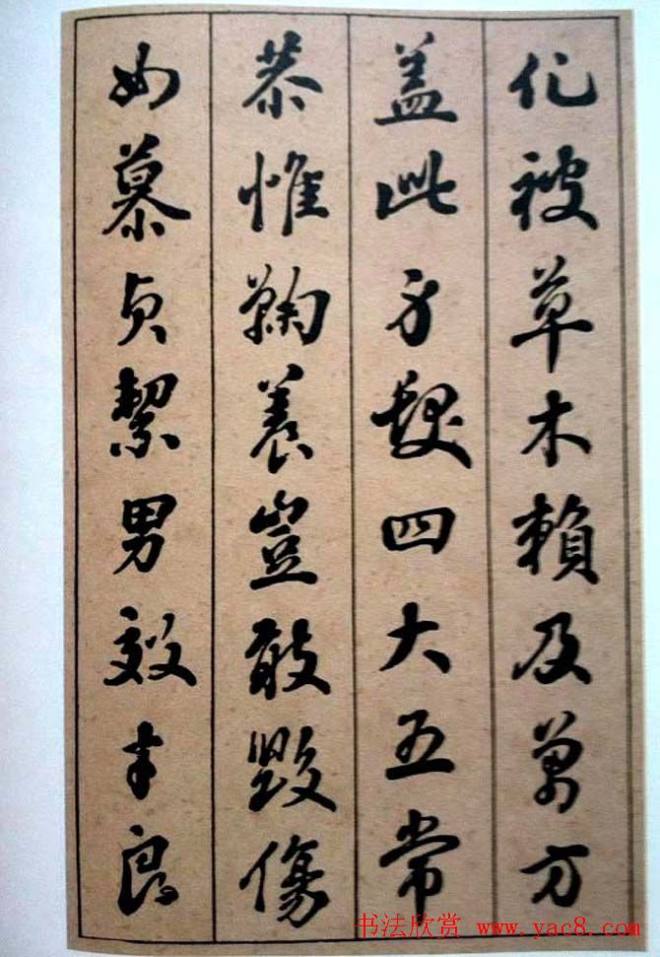 化被草木賴及萬方
盖此身髮四大五常
恭惟鞠養豈敢毀傷
女慕貞絜男效才良
书法欣赏 www.yac8.com